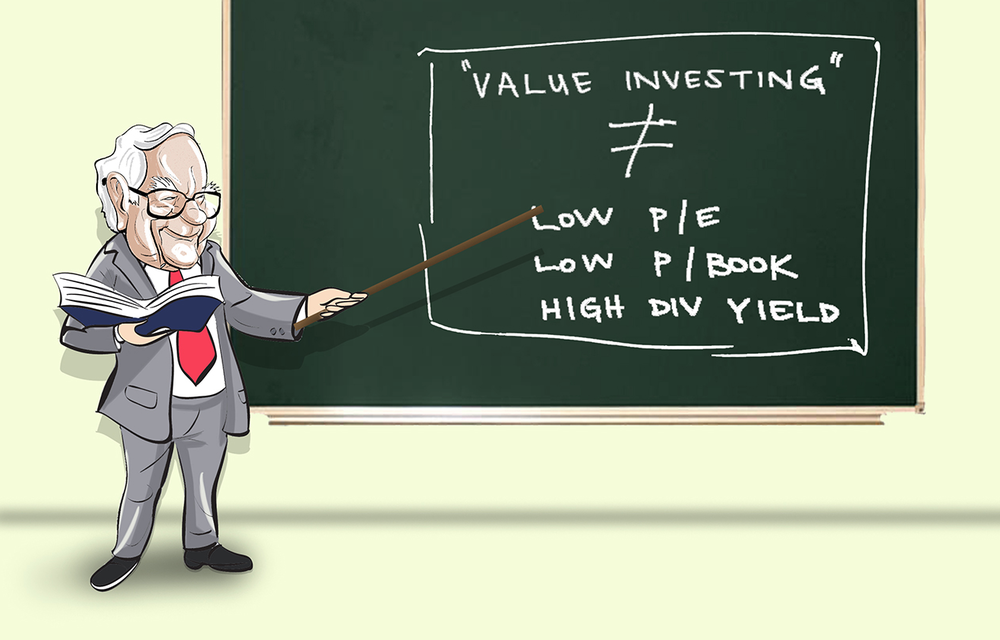 "VALUE INVESTING"
≠
LOW P/E
LOW P/BOOK
HIGH DIV YIELD